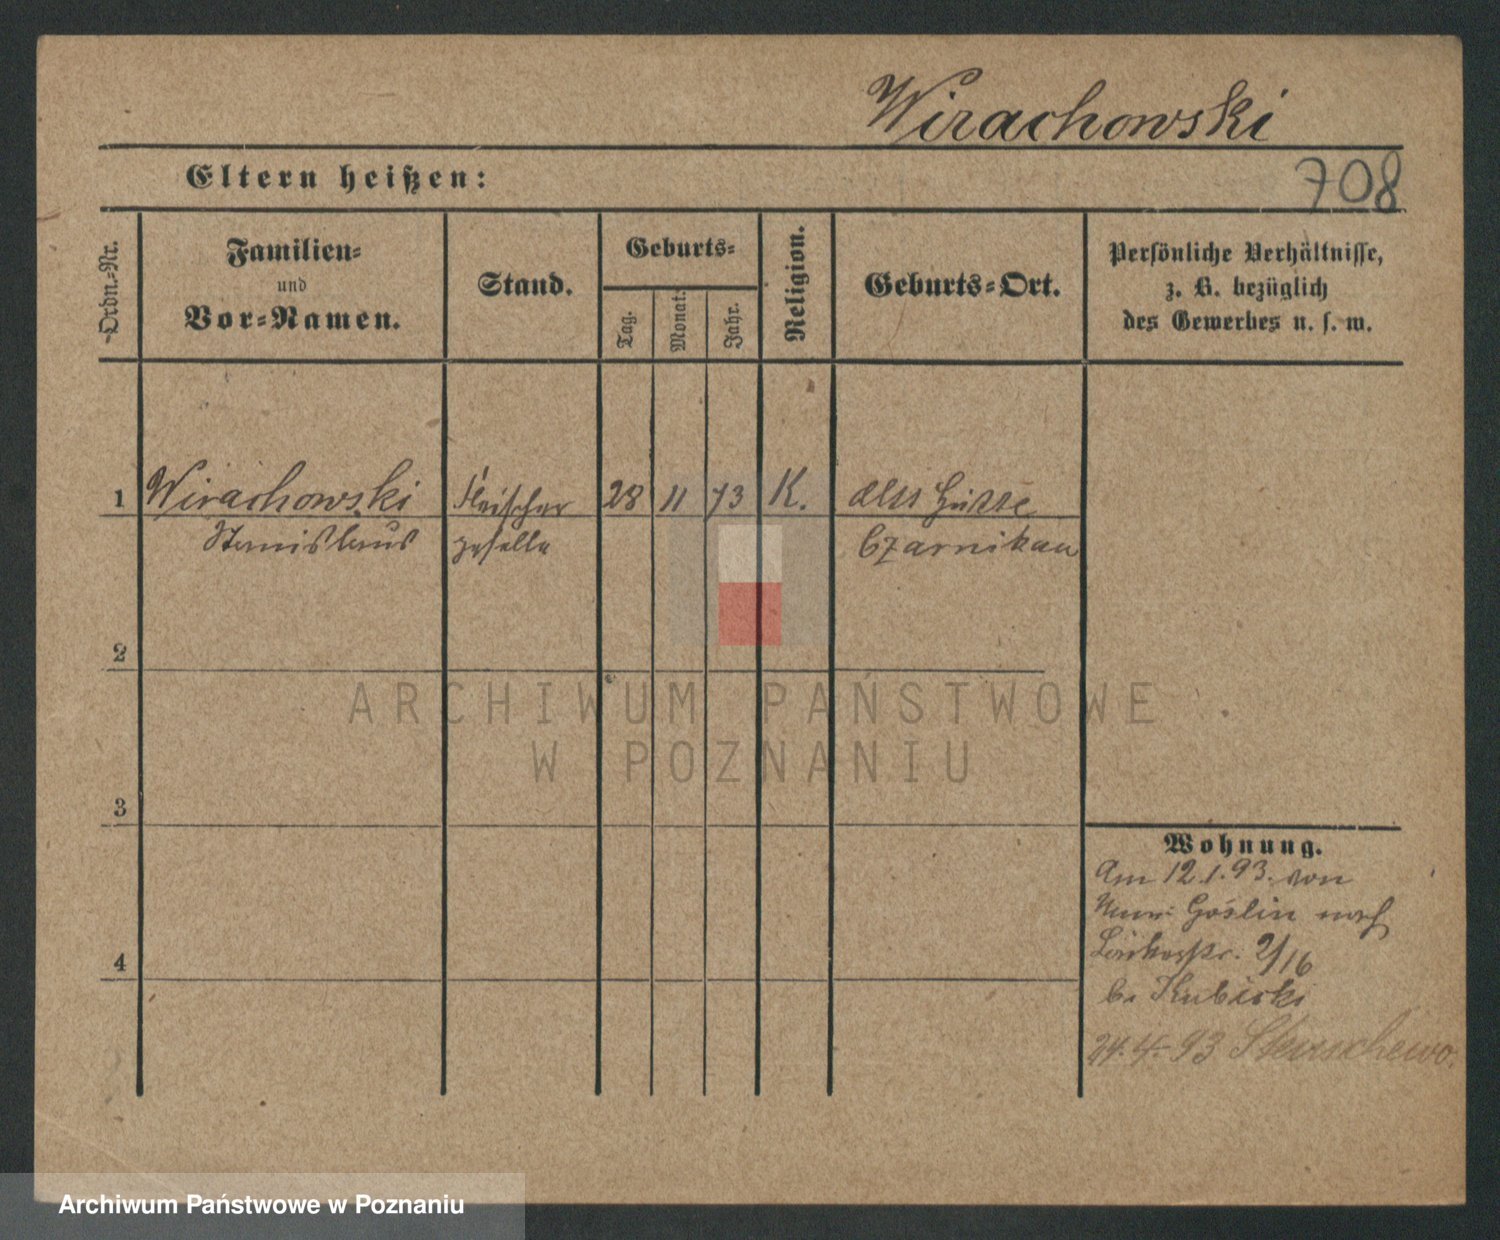 Wirachowski
Eltern heißen:
708
Ordn.-Nr.
Familien-
und
Vor-Namen.
Stand.
Geburts-
Tag.
Monat.
Jahr.
Religion.
Geburts-Ort.
Persönliche Verhältnisse,
z. B. bezüglich
des Gewerbes u. s. w.
1 Wirachowski Fleischer 28 11 73 K.
Stanislaus geselle Czarnikau
2
ARCHIWUM PAŃSTWOWE
W POZNANIU
3
4
Wohnung.
Am 12.1.93. von
Mur: Goslin nach
2/16
b. Kubicki
24.4.93 Stenschewo.
Archiwum Państwowe w Poznaniu